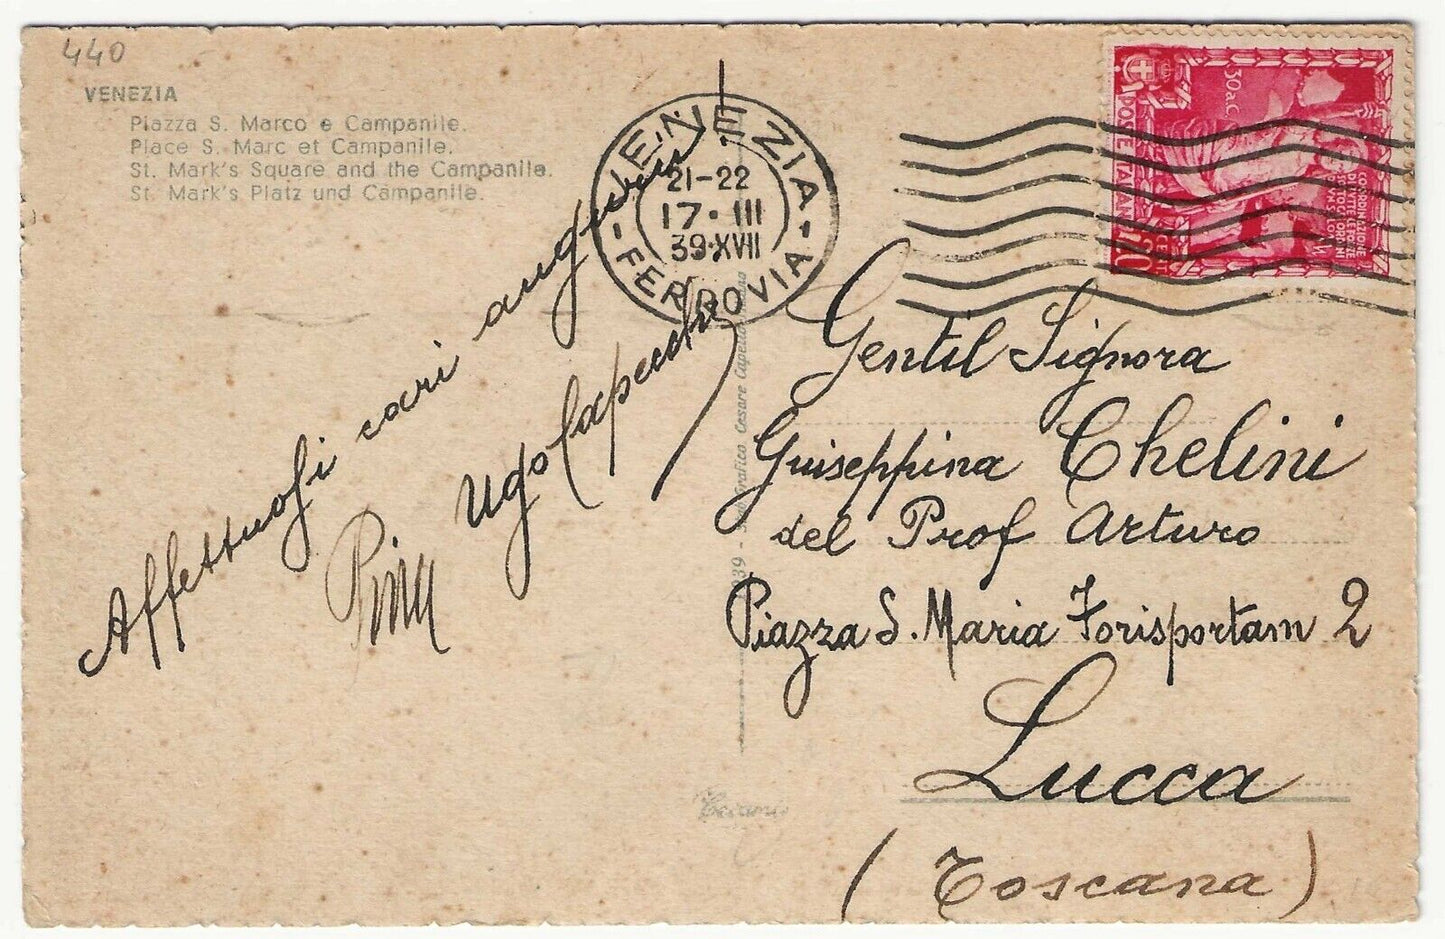 440
VENEZIA
Piazza S. Marco e Campanile.
Place S. Marc et Campanile.
St. Mark's Square and the Campanile.
St. Mark's Platz und Campanile.
VENEZIA
21-22
17·III
39·XVII
- FERROVIA -
30 a.C
POSTE ITALIANE
CENT. 20
COORDINAZIONE
Affettuosi cari auguri
Pina
Ugo
Gentil Signora
Guiseppina Chelini
del Prof Arturo
Piazza S. Maria Forisportam 2
Lucca
(Toscana)
Grafico Cesare Capello